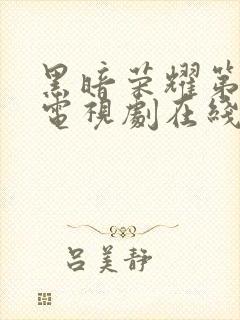 黑暗荣耀第
電視劇在綫
吕美静